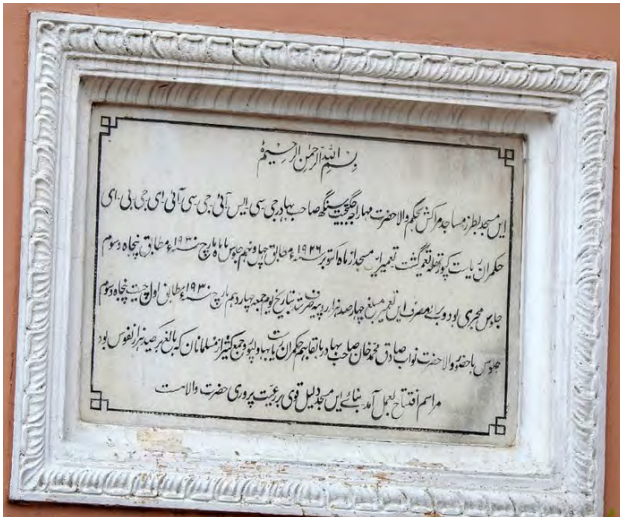 بسم الله الرحمن الرحیم
این مسجد بطرز مساجد مراکش بحکم والا حضرت مهاراجه جگجیت سنگھ صاحب بهادر جی سی ایس آئی جی سی آئی ای جی بی ای
حکمران ریاست کپورتھلہ تعمیر گشت تعمیر این مسجد از ماه اکتوبر ۱۹۲۶ء مطابق چهل و نهم جلوس تا ماه مارچ ۱۹۳۰ء مطابق پنجاه و سوم
جلوس جاری بود و برائے مصرف این تعمیر مبلغ چهار صد هزار روپیه صرف شد بتاریخ یوم جمعه چهاردهم مارچ ۱۹۳۰ء مطابق اول چیت پنجاه و سوم
جلوس با حضور والا حضرت نواب صادق محمد خان صاحب بهادر بالقابهم حکمران ریاست بهاولپور و جمع کثیر از مسلمانان که بالغ بر صد هزار نفوس بود
مراسم افتتاح بعمل آمد، بنائے این مسجد دلیل قوی بر رعیت پروری حضرت والاست